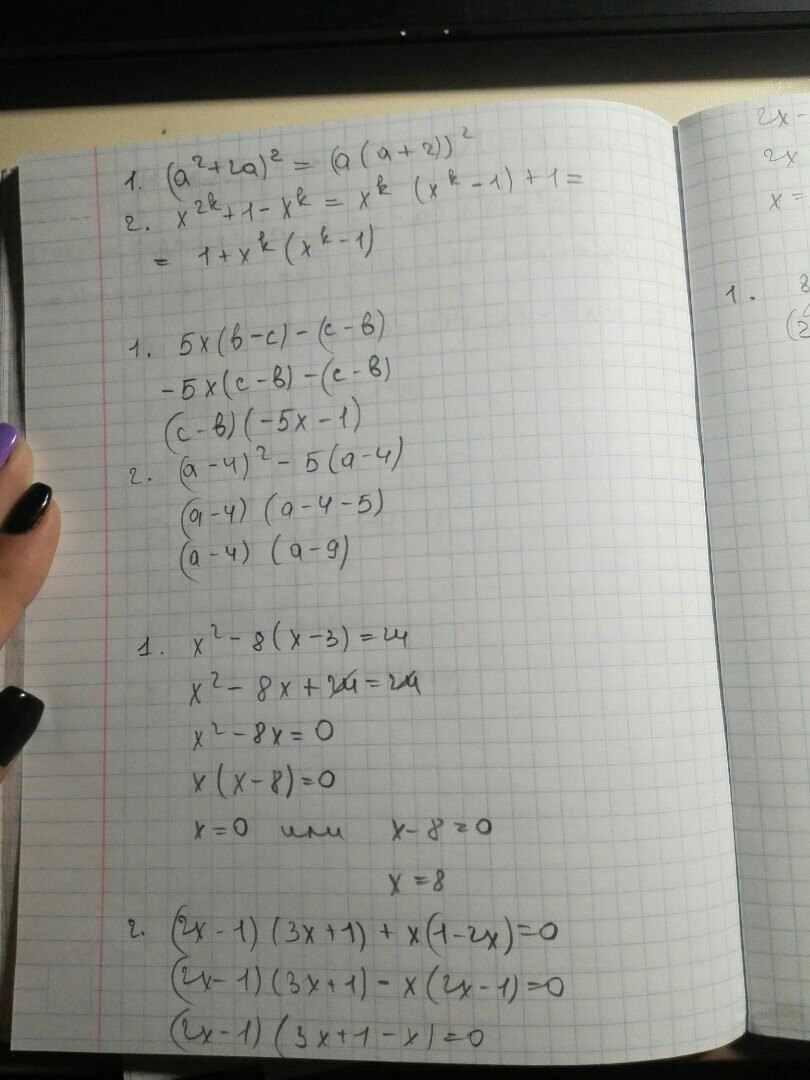 1. (a²+2a)² = (a(a+2))²
2. x²ᵏ+1-xᵏ = xᵏ (xᵏ-1)+1=
= 1+xᵏ(xᵏ-1)
1. 5x(в-с)-(с-в)
-5x(с-в)-(с-в)
(с-в)(-5x-1)
2. (a-4)²-5(a-4)
(a-4) (a-4-5)
(a-4) (a-9)
1. x²-8(x-3)=24
x²-8x+24=24
x²-8x=0
x(x-8)=0
x=0 или x-8=0
x=8
2. (2x-1)(3x+1)+x(1-2x)=0
(2x-1)(3x+1)-x(2x-1)=0
(2x-1)(3x+1-x)=0
2x-
2x
x=
1. 8
(2